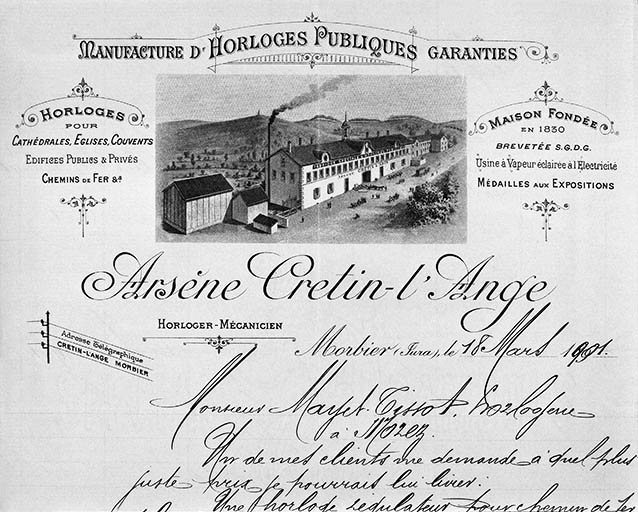 MANUFACTURE D'HORLOGES PUBLIQUES GARANTIES
HORLOGES
POUR
CATHÉDRALES, EGLISES, COUVENTS
EDIFICES PUBLICS & PRIVÉS
CHEMINS DE FER &a
MAISON FONDÉE
EN 1830
BREVETÉE S.G.D.G.
Usine à Vapeur éclairée à l'Electricité
MÉDAILLES AUX EXPOSITIONS
Arsène Cretin-l'Ange
HORLOGER-MÉCANICIEN
Adresse Télégraphique
CRETIN-L'ANGE MORBIER
Morbier (Jura), le 18 Mars 1901.
Monsieur Mayet-Tissot, horlogerie
à Morez
Un de mes clients me demande à quel plus
juste prix je pourrais lui livrer:
Une horloge régulateur pour chemin de fer